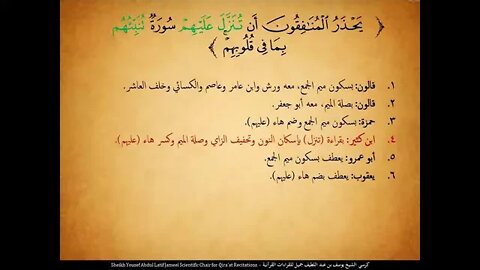 ﴿ يَحْذَرُ الْمُنَافِقُونَ أَن تُنَزَّلَ عَلَيْهِمْ سُورَةٌ تُنَبِّئُهُم
بِمَا فِي قُلُوبِهِمْ ﴾
١. قالون: بسكون ميم الجمع، معه ورش وابن عامر وعاصم والكسائي وخلف العاشر.
٢. قالون: بصلة الميم، معه أبو جعفر.
٣. حمزة: بسكون ميم الجمع وضم هاء (عليهم).
٤. ابن كثير: بقراءة (تنزل) بإسكان النون وتخفيف الزاي وصلة الميم وكسر هاء (عليهم).
٥. أبو عمرو: يعطف بسكون ميم الجمع.
٦. يعقوب: يعطف بضم هاء (عليهم).
Sheikh Yousef Abdul Latif Jameel Scientific Chair for Qira'at Recitations - كرسي الشيخ يوسف بن عبد اللطيف جميل للقراءات القرآنية